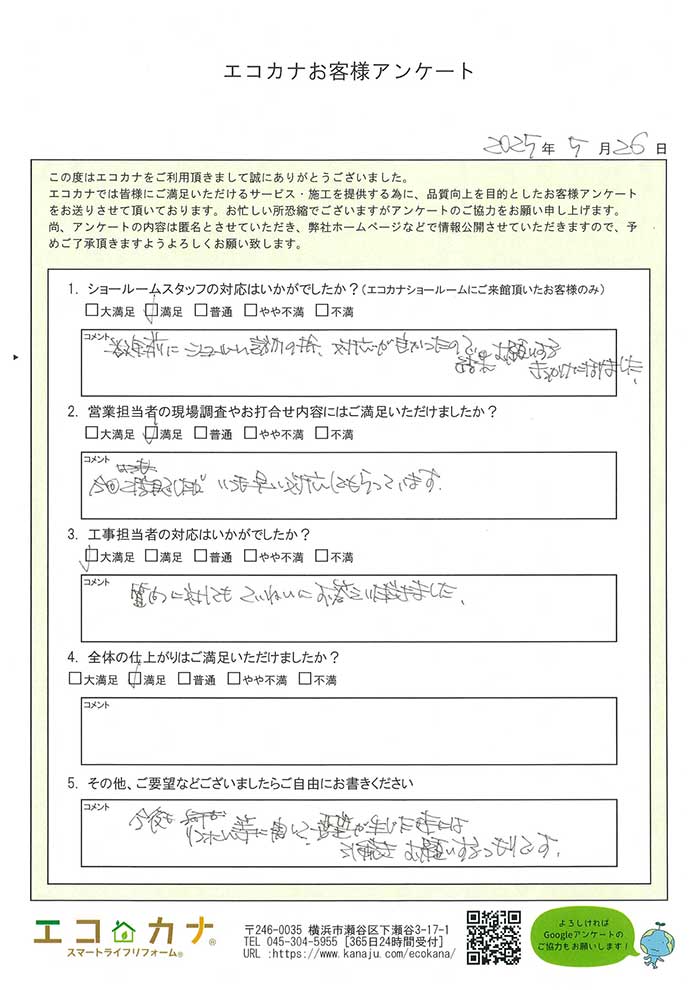 エコカナお客様アンケート
2025年 5月26日
この度はエコカナをご利用頂きまして誠にありがとうございました。
エコカナでは皆様にご満足いただけるサービス・施工を提供する為に、品質向上を目的としたお客様アンケート
をお送りさせて頂いております。お忙しい所恐縮でございますがアンケートのご協力をお願い申し上げます。
尚、アンケートの内容は匿名とさせていただき、弊社ホームページなどで情報公開させていただきますので、予
めご了承頂きますようよろしくお願い致します。
1. ショールームスタッフの対応はいかがでしたか?(エコカナショールームにご来館頂いたお客様のみ)
□大満足 □満足 □普通 □やや不満 □不満
コメント
に ショールーム訪問の際、対応が良かったので お願いする
きっかけになりました。
2. 営業担当者の現場調査やお打合せ内容にはご満足いただけましたか?
□大満足 □満足 □普通 □やや不満 □不満
コメント
いつも早い対応してもらっています。
3. 工事担当者の対応はいかがでしたか?
□大満足 □満足 □普通 □やや不満 □不満
コメント
質問に対しても ていねいに お答え頂きました。
4. 全体の仕上がりはご満足いただけましたか?
□大満足 □満足 □普通 □やや不満 □不満
コメント
5. その他、ご要望などございましたらご自由にお書きください
コメント
今後も リフォーム等に関して が生じた時には
お願いするつもりです。
エコカナ®
スマートライフリフォーム®
〒246-0035 横浜市瀬谷区下瀬谷3-17-1
TEL 045-304-5955 [365日24時間受付]
URL :https://www.kanaju.com/ecokana/
よろしければ
Googleアンケートの
ご協力もお願いします!